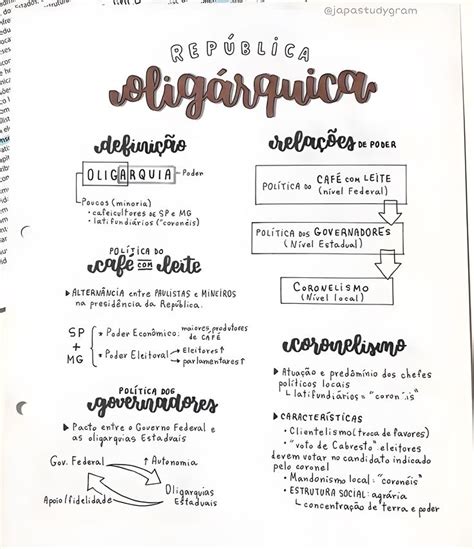 @japastudygram
REPÚBLICA
oligárquica
definição
OLIGARQUIA Poder
Poucos (minoria)
• cafeicultores de SP e MG
• latifundiários ("coronéis")
POLÍTICA DO
café com leite
▸ ALTERNÂNCIA entre PAULISTAS e MINEIROS
na presidência da República.
SP
+
MG
* Poder Econômico: maiores produtores
de CAFÉ
* Poder Eleitoral → Eleitores ↑
→ parlamentares ↑
POLÍTICA DOS
governadores
▸ Pacto entre o Governo Federal e
as oligarquias Estaduais
Gov. Federal ↑ Autonomia
Apoio/fidelidade Oligarquias
Estaduais
relações DE PODER
POLÍTICA DO CAFÉ COM LEITE
(nível Federal)
POLÍTICA DOS GOVERNADORES
(Nível Estadual)
CORONELISMO
(Nível local)
coronelismo
▸ Atuação e predomínio dos chefes
políticos locais
↳ latifundiários = "coronéis"
▸ CARACTERÍSTICAS
• Clientelismo (troca de favores)
• "voto de Cabresto": eleitores
devem votar no candidato indicado
pelo coronel
• Mandonismo local: "coronéis"
• ESTRUTURA SOCIAL: agrária
↳ concentração de terra e poder